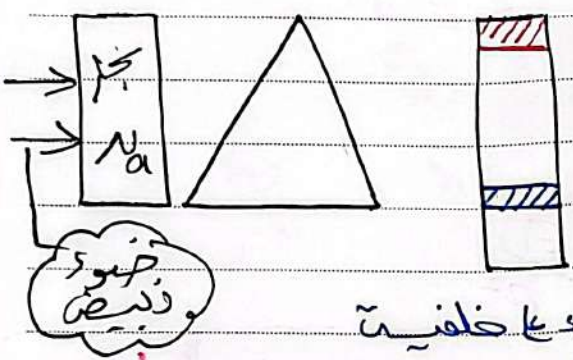 بخار
Na
ضوء
أبيض
ع خلفية